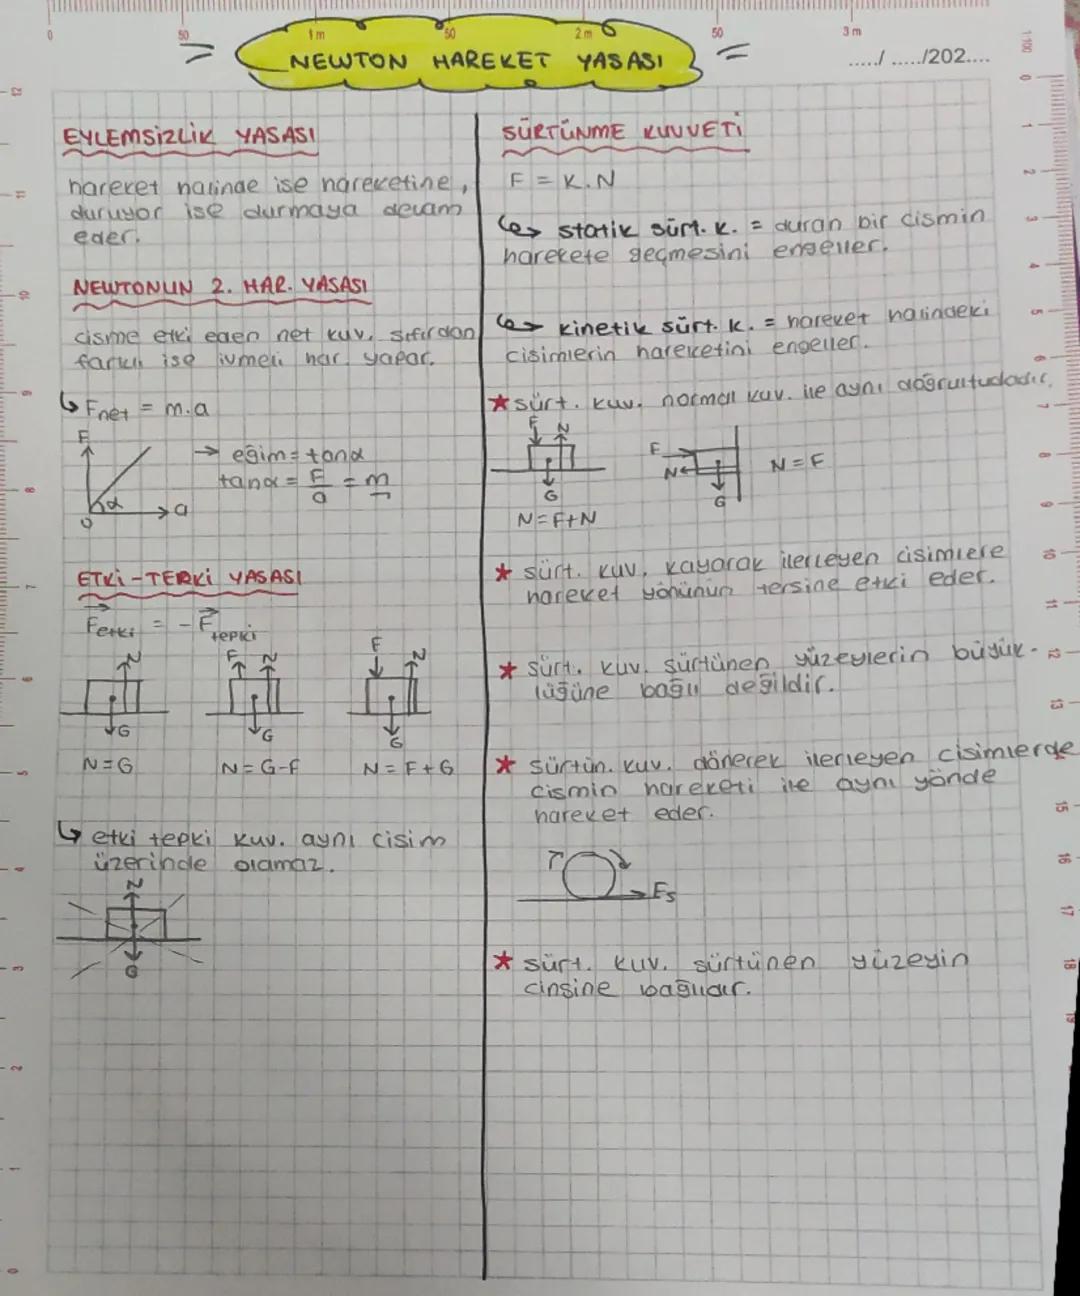 0 50 1m 50 2m 50 3m 1:100
NEWTON HAREKET YASASI
...../ ...../202....
EYLEMSİZLİK YASASI
hareket halinde ise hareketine,
duruyor ise durmaya devam
eder.
NEWTONUN 2. HAR. YASASI
cisme etki eden net kuv. sıfırdan
farklı ise ivmeli har. yapar.
↳ Fnet = m.a
F
→ eğim = tanα
tanα = F/a = m
α
0
a
ETKİ-TEPKİ YASASI
Fetki = - Ftepki
N
F N
F N
G
G
G
N=G
N=G-F
N=F+G
↳ etki tepki kuv. aynı cisim
üzerinde olamaz.
N
G
SÜRTÜNME KUVVETİ
F = K.N
↳ statik sürt. k. = duran bir cismin
harekete geçmesini engeller.
↳ kinetik sürt. k. = hareket halindeki
cisimlerin hareketini engeller.
★ sürt. kuv. normal kuv. ile aynı doğrultudadır.
F N
G
N=F+N
F
N
G
N=F
★ sürt. kuv. kayarak ilerleyen cisimlere
hareket yönünün tersine etki eder.
★ sürt. kuv. sürtünen yüzeylerin büyük-
lüğüne bağlı değildir.
★ sürtün. kuv. dönerek ilerleyen cisimlerde
cismin hareketi ile aynı yönde
hareket eder.
Fs
★ sürt. kuv. sürtünen yüzeyin
cinsine bağlıdır.
12
11
10
9
8
7
6
5
4
3
2
1
0
0
1
2
3
4
5
6
7
8
9
10
11
12
13
15
16
17
18
19